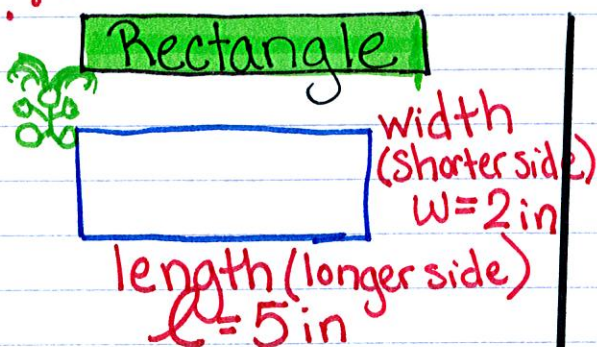 Rectangle
width
(Shorter side)
W=2in
length (longer side)
l=5in